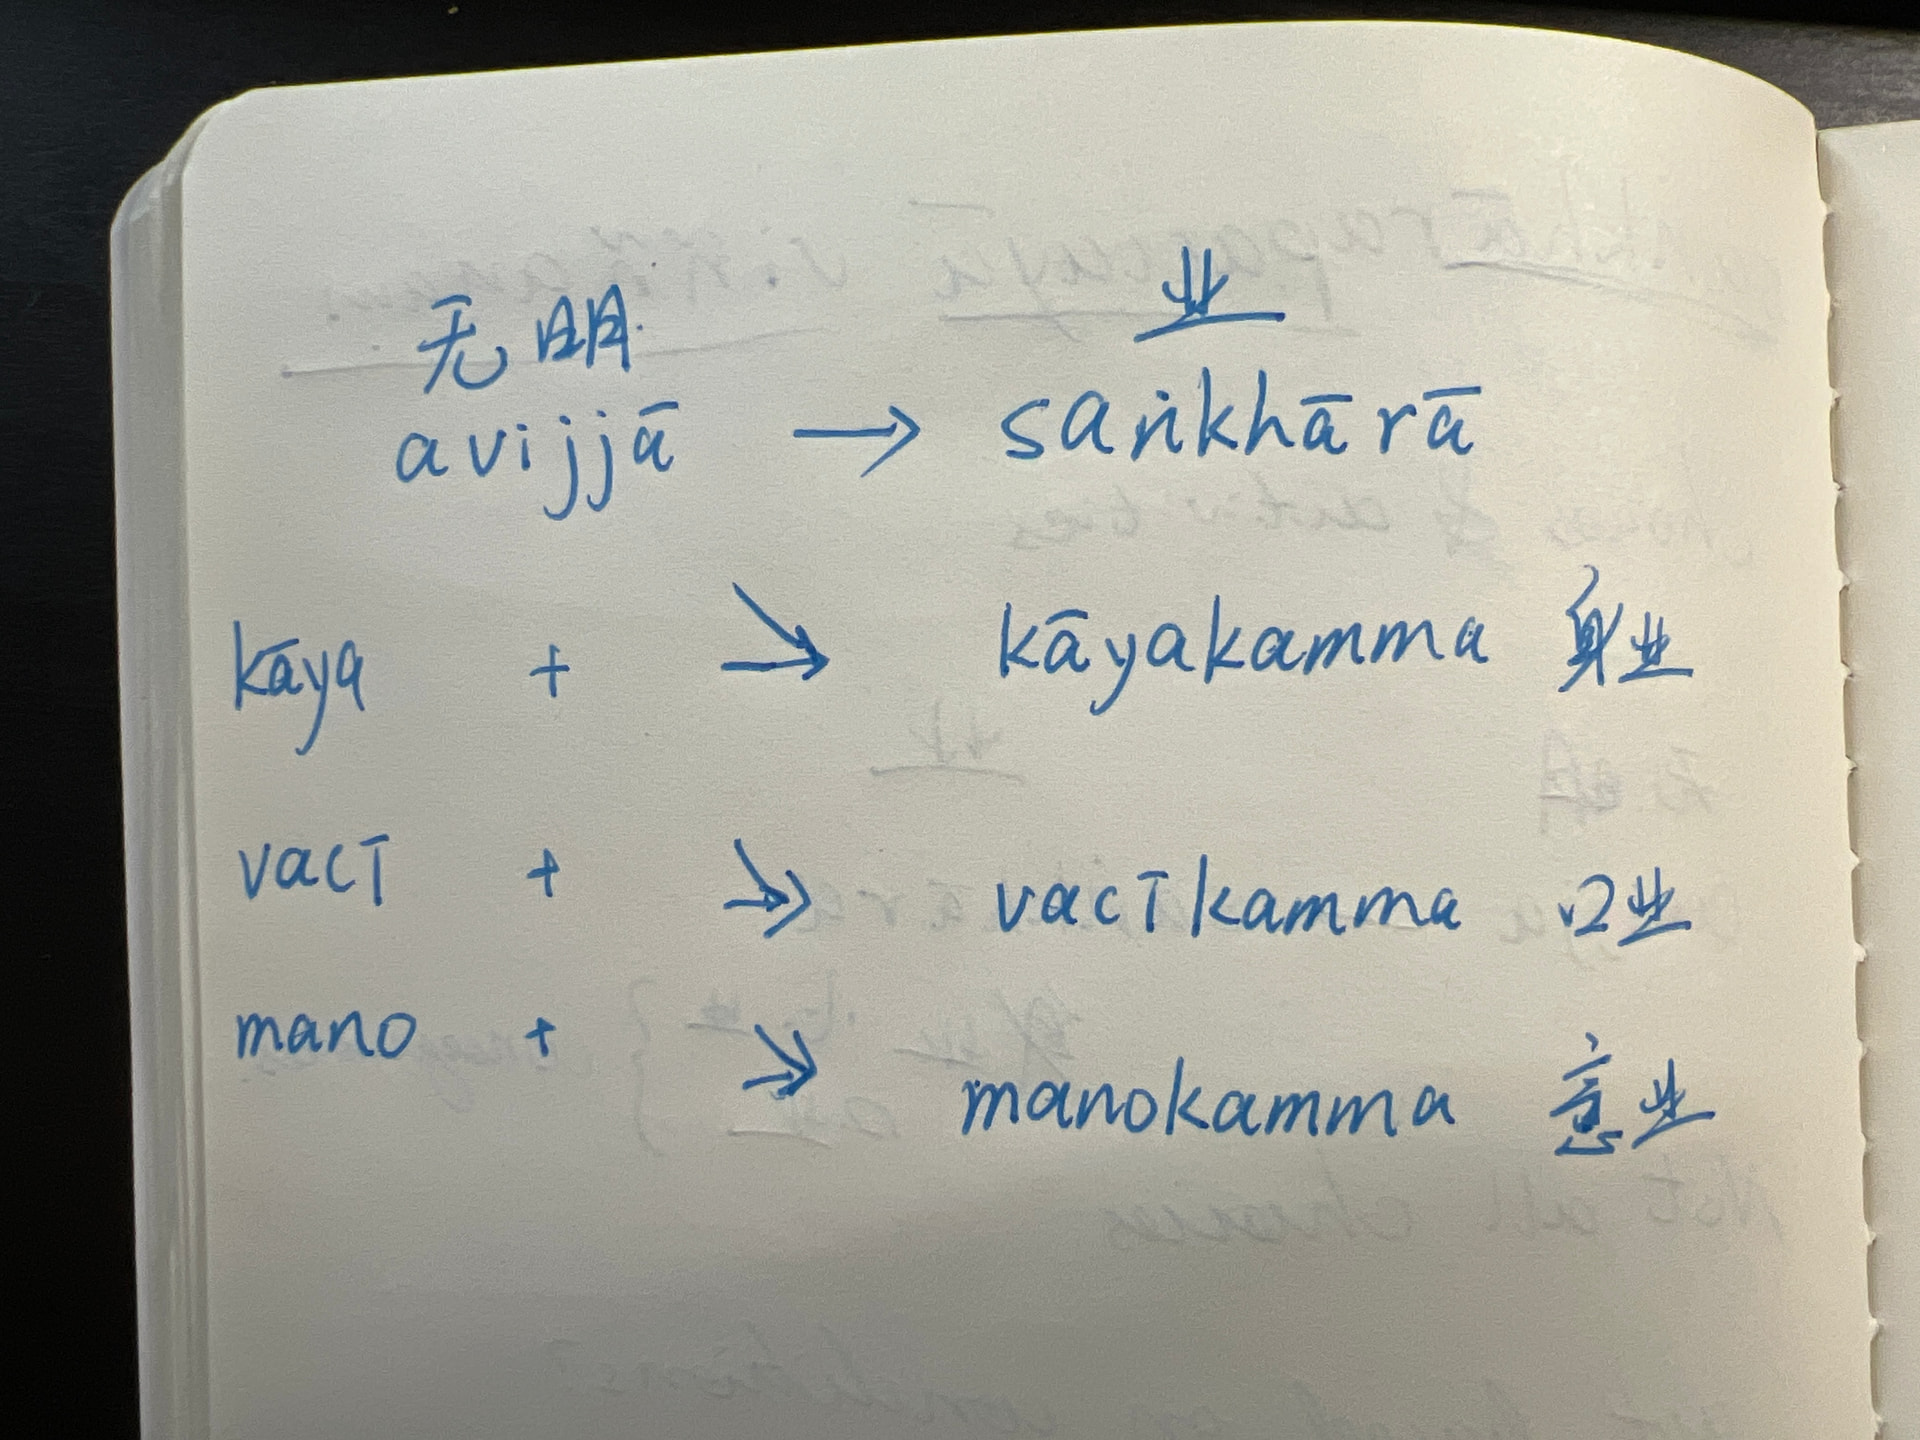 无明 业
avijjā → saṅkhārā
kāya + → kāyakamma 身业
vacī + → vacīkamma 口业
mano + → manokamma 意业